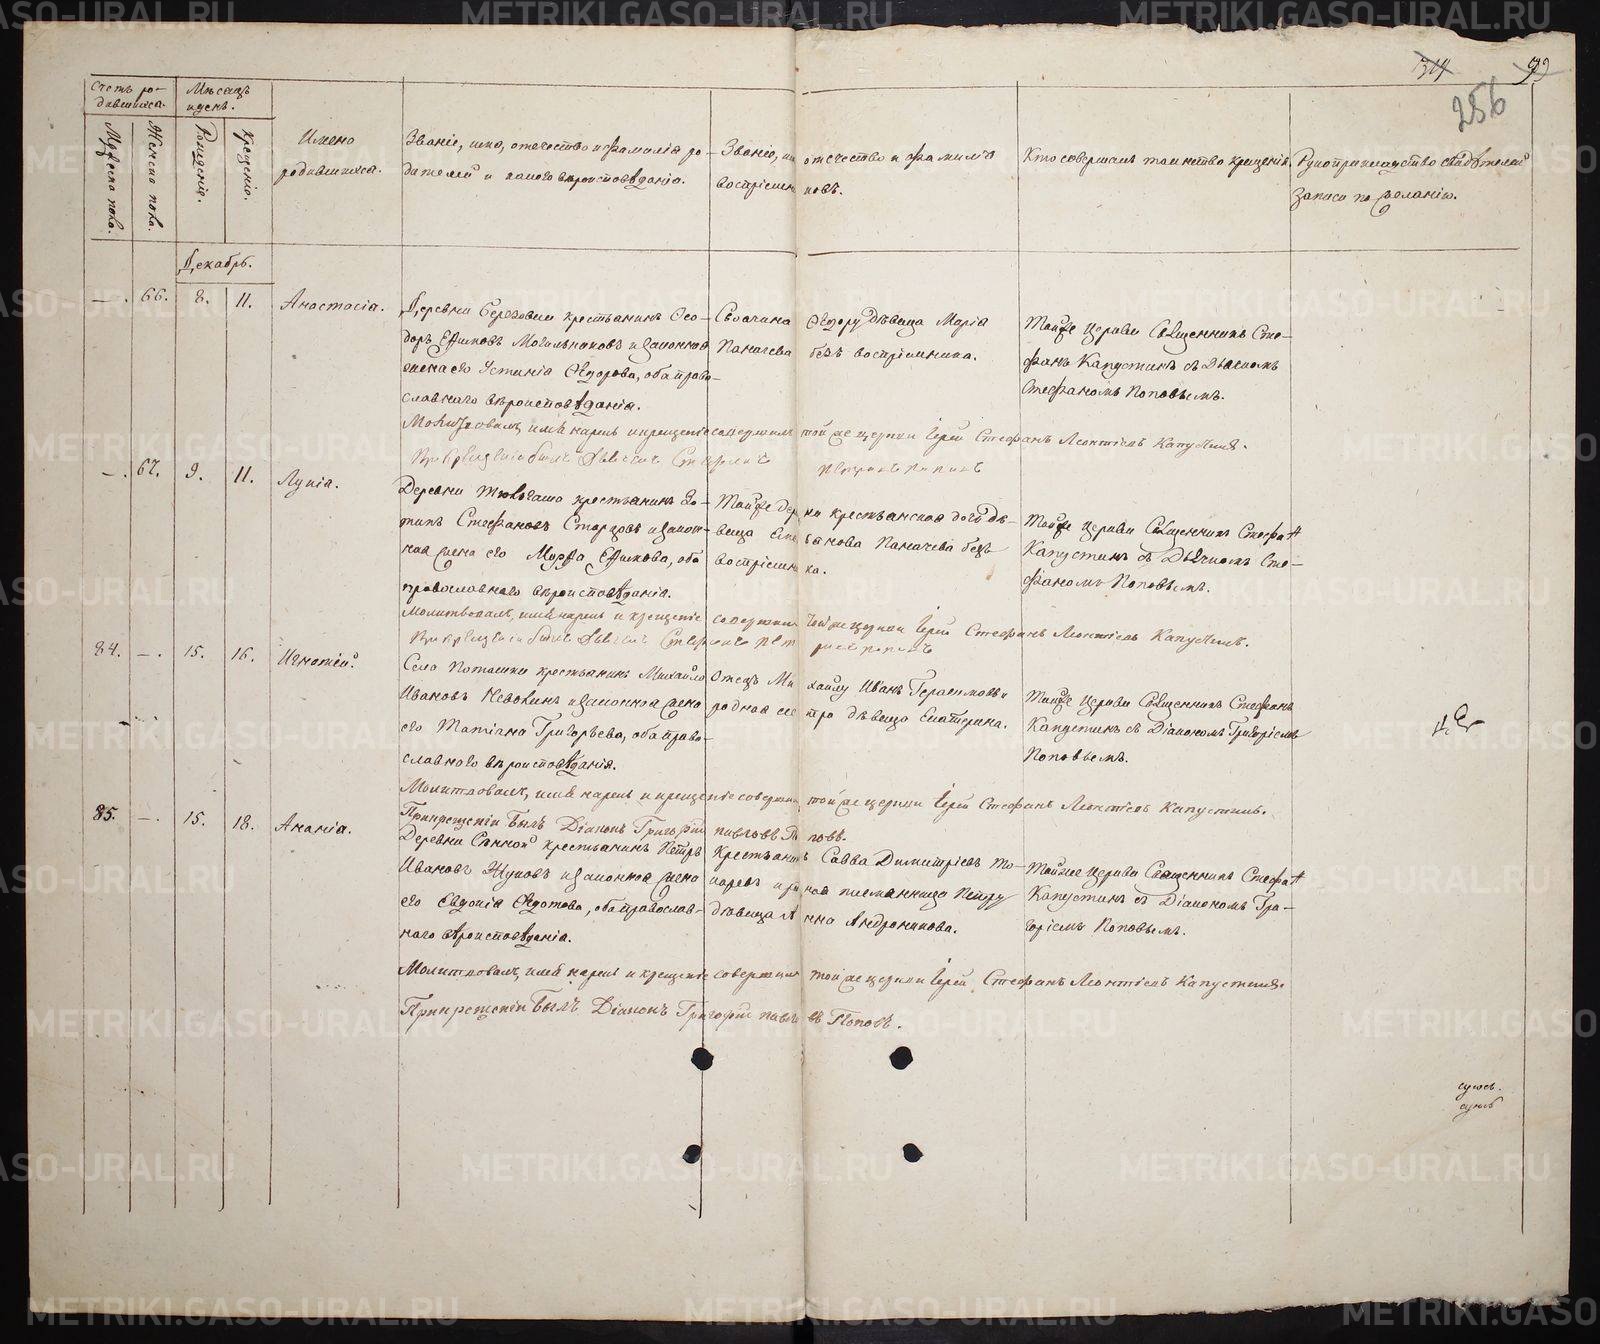 256
Счетъ ро-
дившихся.
Мѣсяцъ
и день.
Мужеска пола.
Женска пола.
Рожденія.
Крещенія.
Имена
родившихся.
Званіе, имя, отечество и фамилія ро-
дителей и какого вѣроисповѣданія.
Званіе, имя отечество и фамилія
воспріемниковъ.
Кто совершалъ таинство крещенія
Рукоприкладство свидѣтелей
записи по желанію.
Декабрь.
—. 66. 8. 11. Анастасія.
Деревни Березовки крестьянинъ Ѳео-
доръ Ефимовъ Могильниковъ и законная
жена его Устинія Ѳедорова, оба право-
славнаго вѣроисповѣданія.
Своячина Ѳедору дѣвица Марія
Паначева безъ воспріемника.
Тойже церкви Священникъ Сте-
фанъ Капустинъ съ Дьячкомъ
Стефаномъ Поповымъ.
Молитвовалъ, имя нарекъ и крещеніе совершилъ той же церкви Іерей Стефанъ Леонтіевъ Капустинъ.
—. 67. 9. 11. Лукія.
Деревни крестьянинъ
Стефановъ и закон-
ная жена его Марфа Ефимова, оба
православнаго вѣроисповѣданія.
Тойже деревни крестьянская дочь дѣ-
вица Паначева безъ
воспріемника.
Тойже церкви Священникъ Стефанъ
Капустинъ съ Дьячкомъ Сте-
фаномъ Поповымъ.
Молитвовалъ, имя нарекъ и крещеніе совершилъ той же церкви Іерей Стефанъ Леонтіевъ Капустинъ.
84. —. 15. 16. Игнатій.
Села Поташки крестьянинъ Михайло
Ивановъ Неволинъ и законная жена
его Татіана Григорьева, оба право-
славнаго вѣроисповѣданія.
Отецъ Михаилу Иванъ Герасимовъ и
родная сестра дѣвица Екатерина.
Тойже церкви Священникъ Стефанъ
Капустинъ съ Діакономъ Григоріемъ
Поповымъ.
Молитвовалъ, имя нарекъ и крещеніе совершилъ той же церкви Іерей Стефанъ Леонтіевъ Капустинъ.
При крещеніи былъ Діаконъ Григорій Павловъ Поповъ.
85. —. 15. 18. Ананія.
Деревни Сѣнной крестьянинъ Петръ
Ивановъ Жуковъ и законная жена
его Евдокія Ѳедотова, оба православ-
наго вѣроисповѣданія.
Крестьянинъ Савва Димитріевъ То-
каревъ и родная племянница Петру
дѣвица Анна Андроникова.
Тойже церкви Священникъ Стефанъ
Капустинъ съ Діакономъ Гри-
горіемъ Поповымъ.
Молитвовалъ, имя нарекъ и крещеніе совершилъ той же церкви Іерей Стефанъ Леонтіевъ Капустинъ.
При крещеніи былъ Діаконъ Григорій Павловъ Поповъ.
METRIKI.GASO-URAL.RU